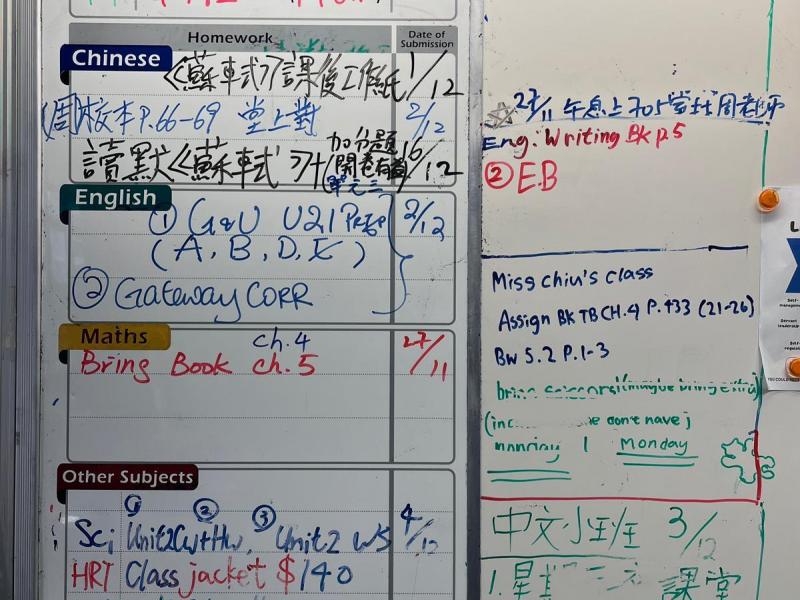 Homework
Date of Submission
Chinese
《蘇軾》課後工作紙 1/12
(周)校本P.66-69 堂上對 2/12
讀默《蘇軾》
加分題
單元三
/12
English
① G&U U21
(A, B, D, E)
2/12
② Gateway CORR
Maths
Ch.4
Bring Book ch.5 27/11
Other Subjects
① ② ③
Sci Unit2 CW+HW, Unit2 WS 4/12
HRT Class jacket $140
27/11 午息上 周老師
Eng. Writing Bk p5
② E.B
Miss chiu's class
Assign BK TB CH.4 P.433 (21-26)
BW 5.2 P.1-3
bring scissors! (maybe bring extra)
don't have
Monday
中文小班 3/12
1.
課堂